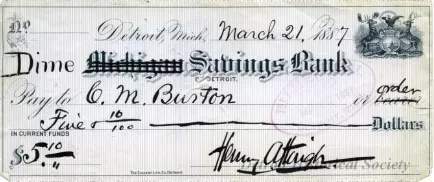 No.
Detroit, Mich. March 21, 1887
Dime Michigan Savings Bank
DETROIT.
Pay to C. M. Burton or order
Five & 10/100 Dollars
IN CURRENT FUNDS
$5.10
Henry
THE CALVERT LITH. CO. DETROIT